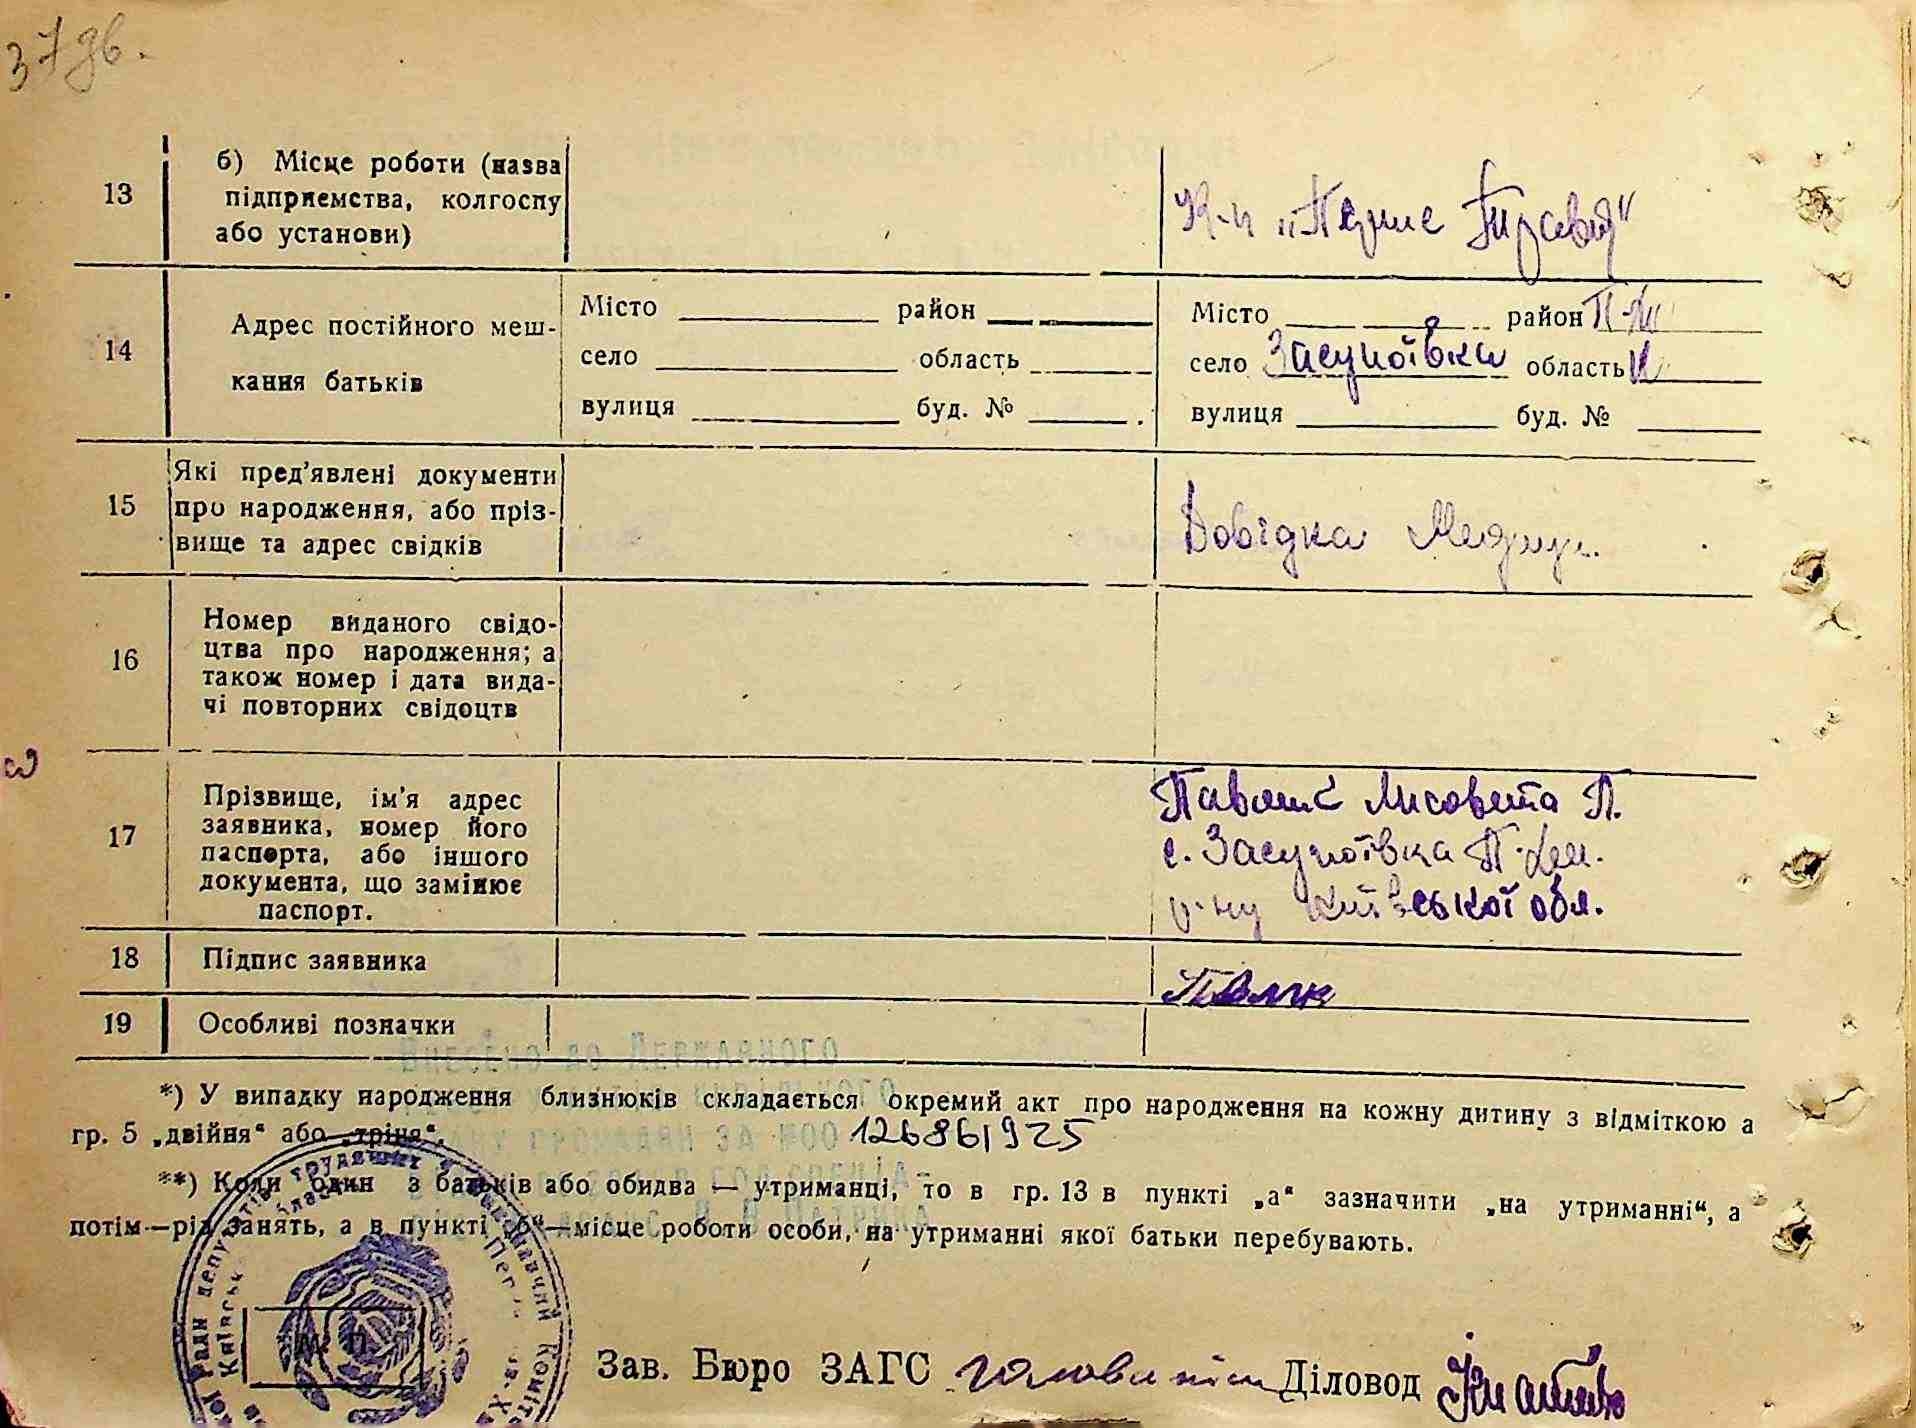 37зв.
13
б) Місце роботи (назва
підприємства, колгоспу
або установи)
К-п „Перше Травня“
14
Адрес постійного меш-
кання батьків
Місто район
село область
вулиця буд. №
Місто район П-Хм
село Засупоївка область К
вулиця буд. №
15
Які пред'явлені документи
про народження, або пріз-
вище та адрес свідків
Довідка Медичн.
16
Номер виданого свідо-
цтва про народження; а
також номер і дата вида-
чі повторних свідоцтв
17
Прізвище, ім'я адрес
заявника, номер його
паспорта, або іншого
документа, що замінює
паспорт.
Лисовета П.
с. Засупоївка П-Хм.
р-ну Київської обл.
18
Підпис заявника
19
Особливі позначки
Внесено до Державного
*) У випадку народження близнюків складається окремий акт про народження на кожну дитину з відміткою а
гр. 5 „двійня“ або „трійня“.
громадян за №00 126861925
**) Коли один з батьків або обидва — утриманці, то в гр. 13 в пункті „а“ зазначити „на утриманні“, а
потім—рід занять, а в пункті „б“—місце роботи особи, на утриманні якої батьки перебувають.
М. П.
Зав. Бюро ЗАГС Діловод